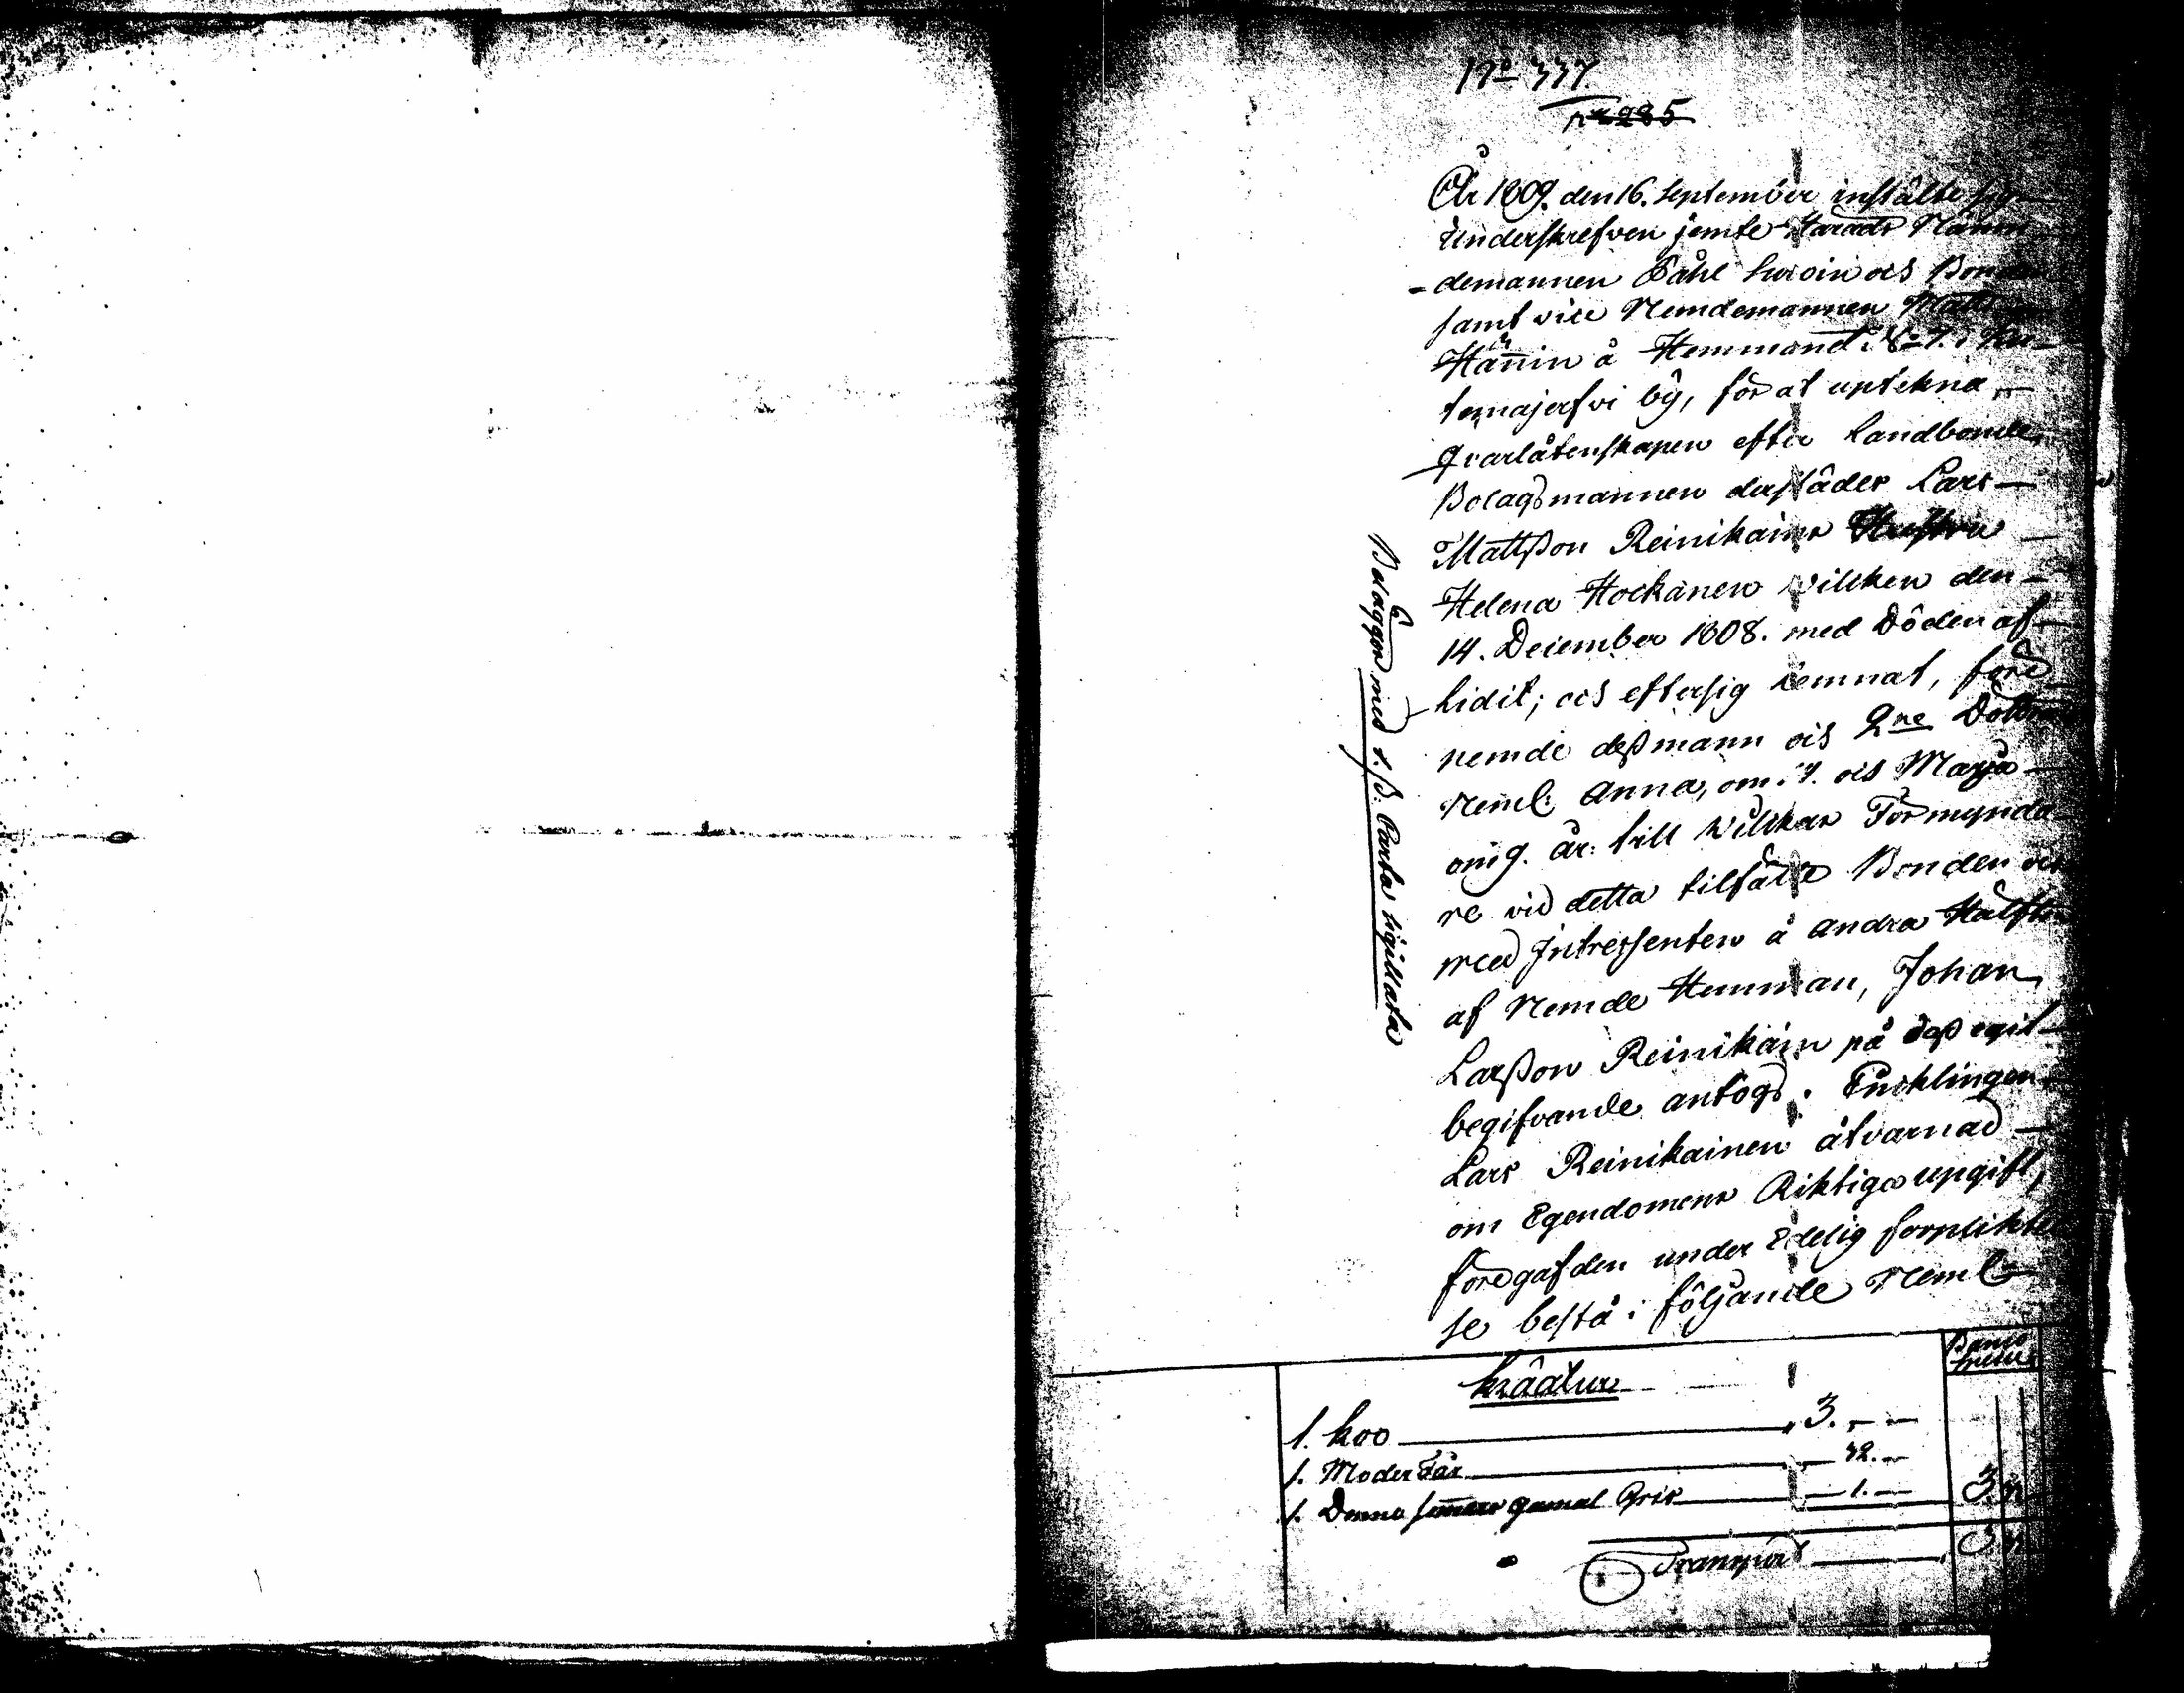 No 337.
n:o 285
År 1809. den 16. September instälte sig
Underskrefven jemte Härads Näm
-demannen Påhl och Bonden
samt vice Nemdemannen Matts
Hännin å Hemmanet No 7. i
temajerfvi by, för at uptekna
qvarlåtenskapen efter Landbonde
Bolagsmannen derstädes Lars
Mattsson Reinikains Hustru
Helena Hockanen vilken den
14. December 1808. med Döden af-
lidit; och eftersig lemnat, före
nemde dess mann och 2ne Döttrar
Neml: Anna, om 7. och Marja
om 9. år: till vilkas Förmynda
re vid detta tilfälle Bonden och
med Intressenten å andra Hälften
af Nemde Hemman, Johan
Larsson Reinikain på dess egit
begifvande antogs. Enklingen
Lars Reinikainen åtvarnad
om Egendomens Riktiga upgift,
föregaf den under Edelig förplikte
se bestå i följande Neml:
Belägges med 1. ß: Carta sigillata
Banco
Kräätur
1. Koo 3. - -
1. Moder Får 32. -
1. Denna sommars gamal Gris 1. - 3.
Transport 3.